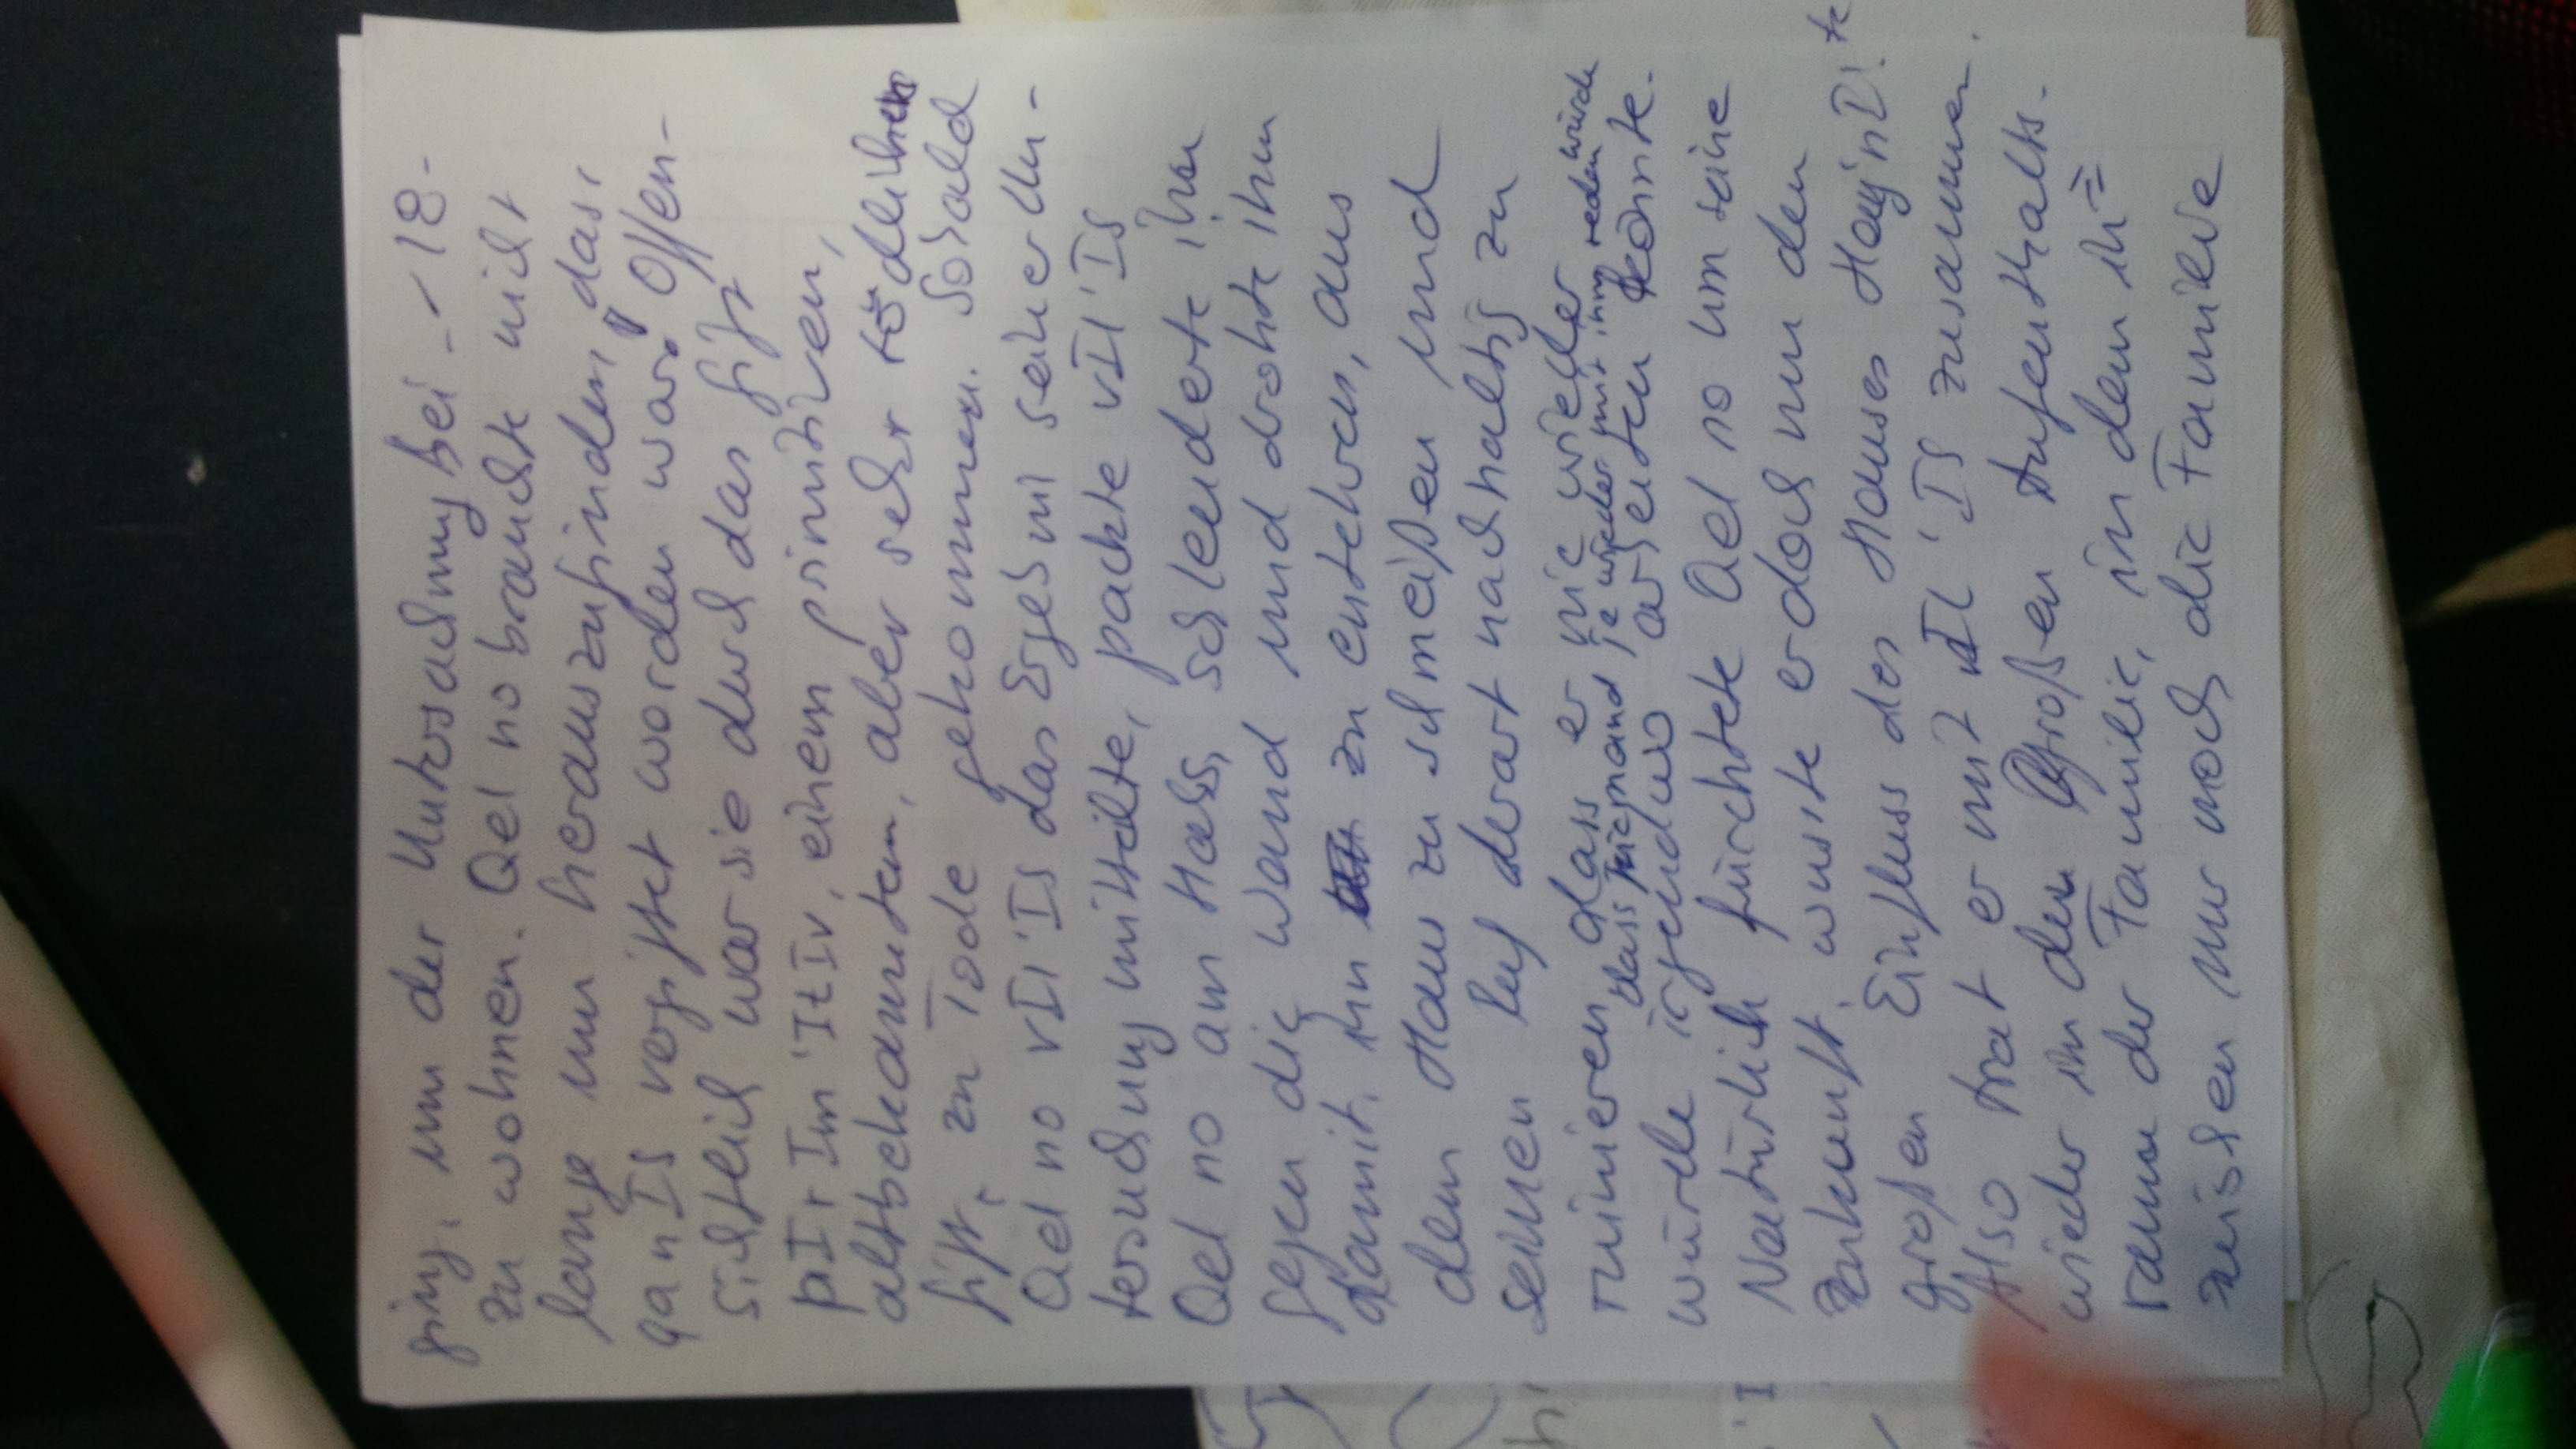 ging, um der Untersuchung bei- -18-
zu wohnen. Qel no brauchte nicht
lange um herauszufinden, das,
qanIS vergiftet worden war. Offen-
sichtlich war sie durch das Gift
pIr Im 'It Iv, einem primitiven,
altbekanntem, aber sehr tödlichen
Gift, zu Tode gekommen. Sobald
Qel no vIl'Is das Ergebnis seiner Un-
tersuchung mitteilte, packte vIl'Is
Qel no am Hals, schleuderte ihn
gegen die Wand und drohte ihm
damit, ihn zu entehren, aus
dem Haus zu schmeißen und
seinen Ruf derart nachhaltig zu
ruinieren dass er nie wieder
dass niemand je wieder mit ihm reden würde
würde irgendwo arbeiten könnte.
Natürlich fürchtete Qel no um seine
Zukunft, wusste er doch um den
großen Einfluss des Hauses Hay'nDI'te
Also trat er mit vIl'Is zusammen.
wieder in den großen Aufenthalts-
raum der Familie, in dem in=
zwischen nur noch die Familie